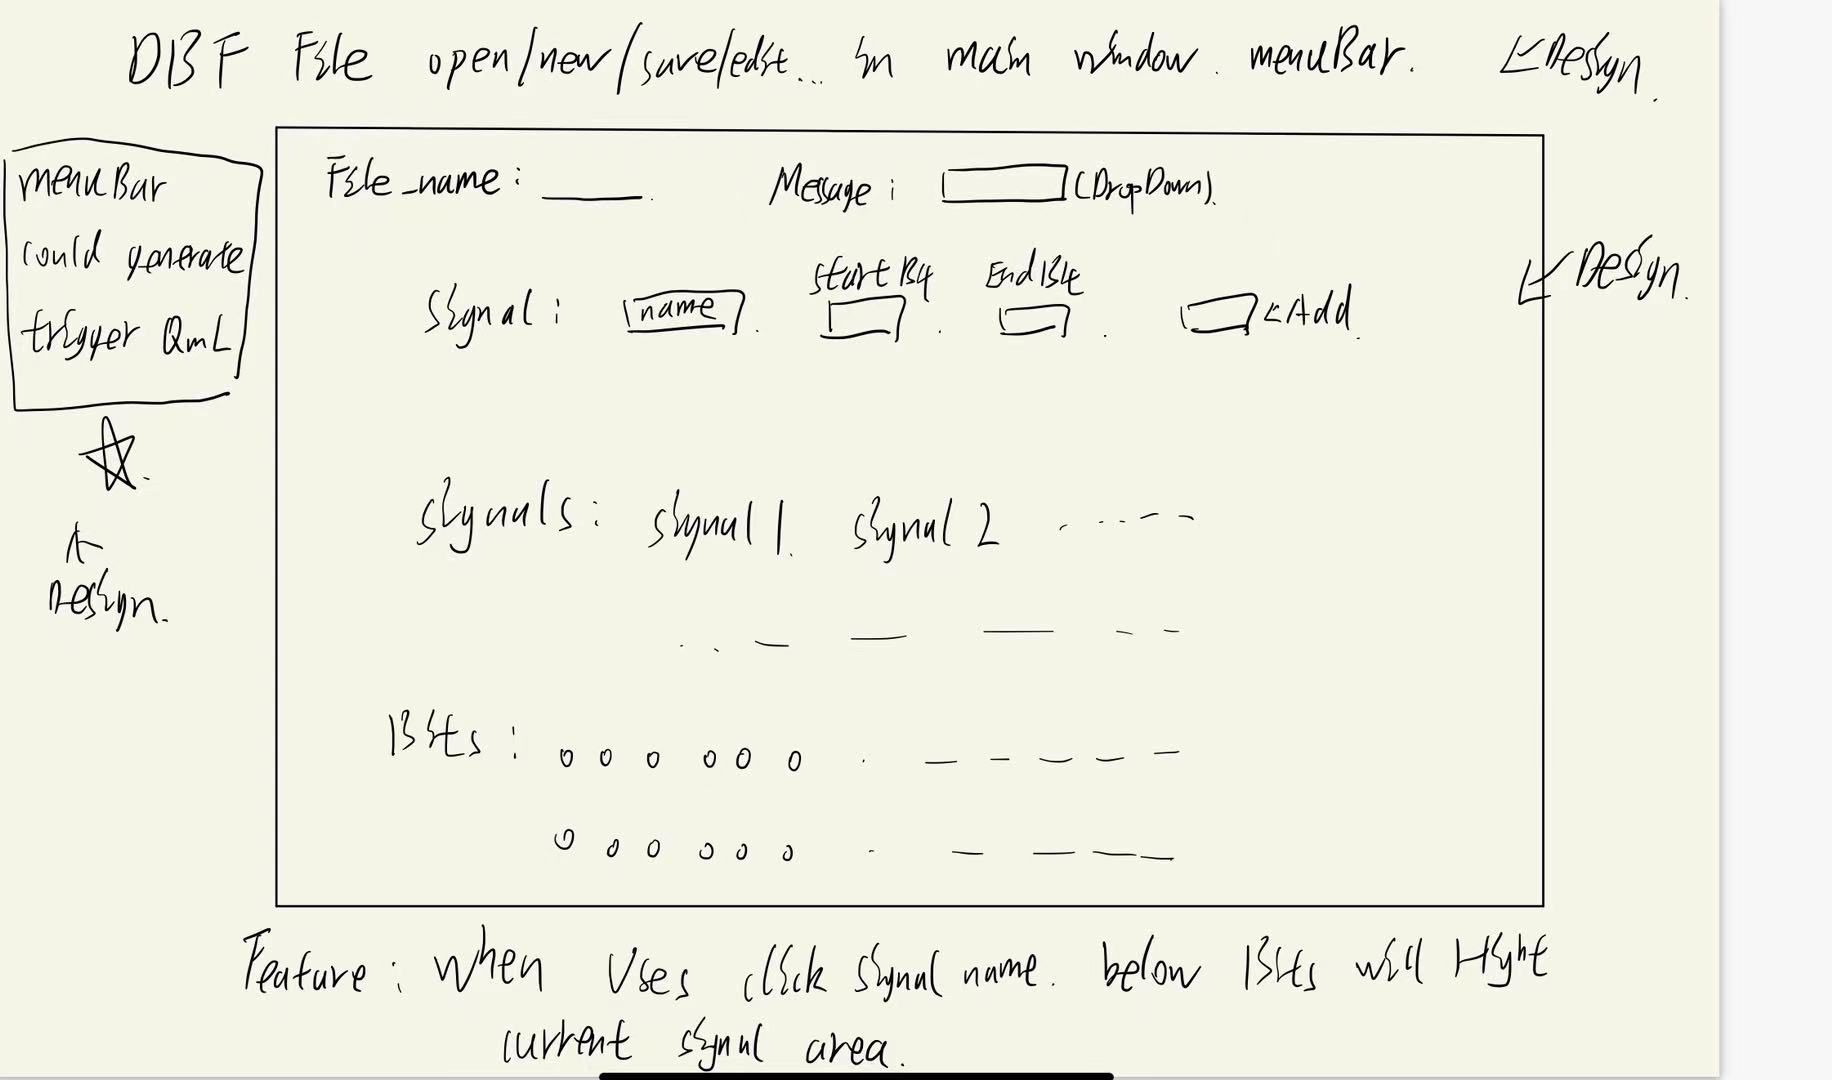 DBF File open/new/save/edit... in main window. menuBar. ← Design.
menuBar
could generate
trigger QmL
← Design.
File_name: ____. Message: (DropDown).
Start Bit End Bit
Signal: name . . . ← Add.
← Design.
Signals: signal 1. signal 2 ......
Bits: 0 0 0 0 0 0 . _ _ _ _ _
0 0 0 0 0 0 . _ _ _ _
Feature: When Uses click signal name. below Bits will Hight
current signal area.